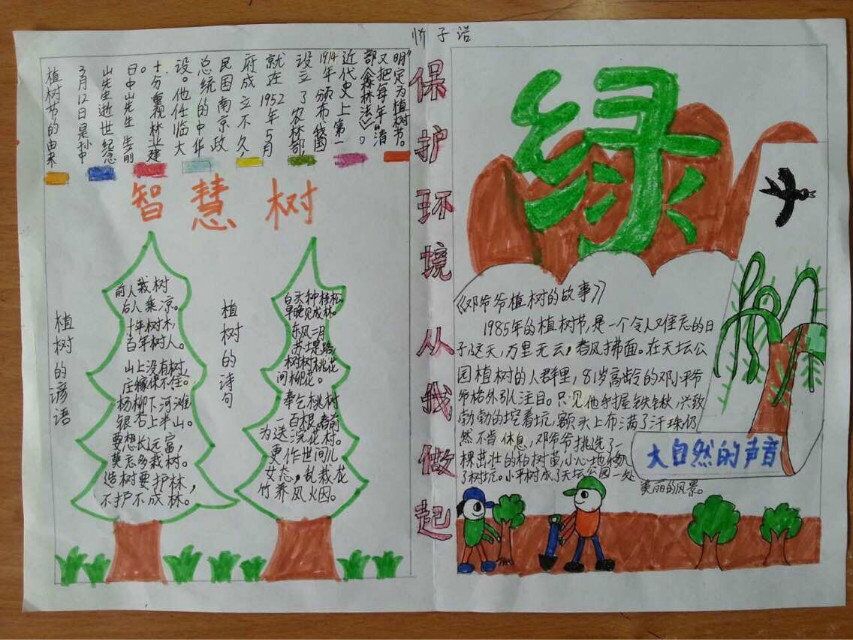 忻子诺
植树节的由来
3月12日是孙中
山先生逝世纪念
日中山先生生前
十分重视林业建
设。他任临大
总统的中华
民国南京政
府成立不久
就在1952年5月
设立了农林部
1914年颁布我国
近代史上第一
部《森林法》。
又把每年"清
明"定为植树节。
智慧树
植树的谚语
前人栽树
后人乘凉。
十年树木
百年树人。
山上没有树,
庄稼保不住。
杨柳下河滩
银石上米山。
要想长远富,
莫忘多栽树。
造树要护林,
不护不成林。
植树的诗句
白头种桃松,
早晚见成林。
东风二月
苏堤路
树树桃花
间柳花。
奉乞桃树
一百根,春前
为送浣花村。
更作世间儿
女态,乱栽花
竹养风火因。
保护环境从我做起
绿
《邓爷爷植树的故事》
1985年的植树节,是一个令人难忘的日
子这天,万里无云,春风拂面。在天坛公
园植树的人群里,81岁高龄的邓小平爷
爷格外引人注目。只见他手握铁锹,兴致
勃勃的挖着坑,额头上布满了汗珠仍
然不肯休息,邓爷爷挑选了一
棵茁壮的柏树苗,小心地移入
了树坑。小树成了天坛公园一处
美丽的风景。
大自然的声音